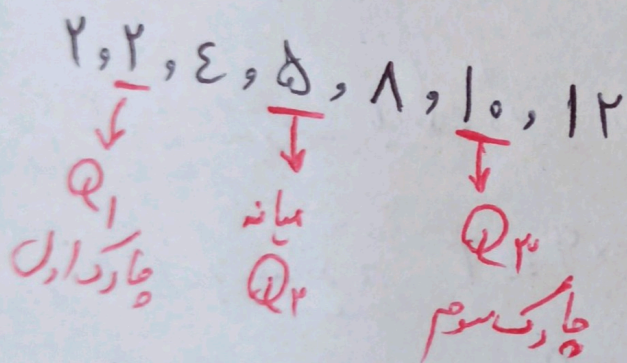 ۲, ۲, ٤, ۵, ۸, ۱۰, ۱۲
Q۱
چارک اول
میانه
Q۲
Q۳
چارک سوم